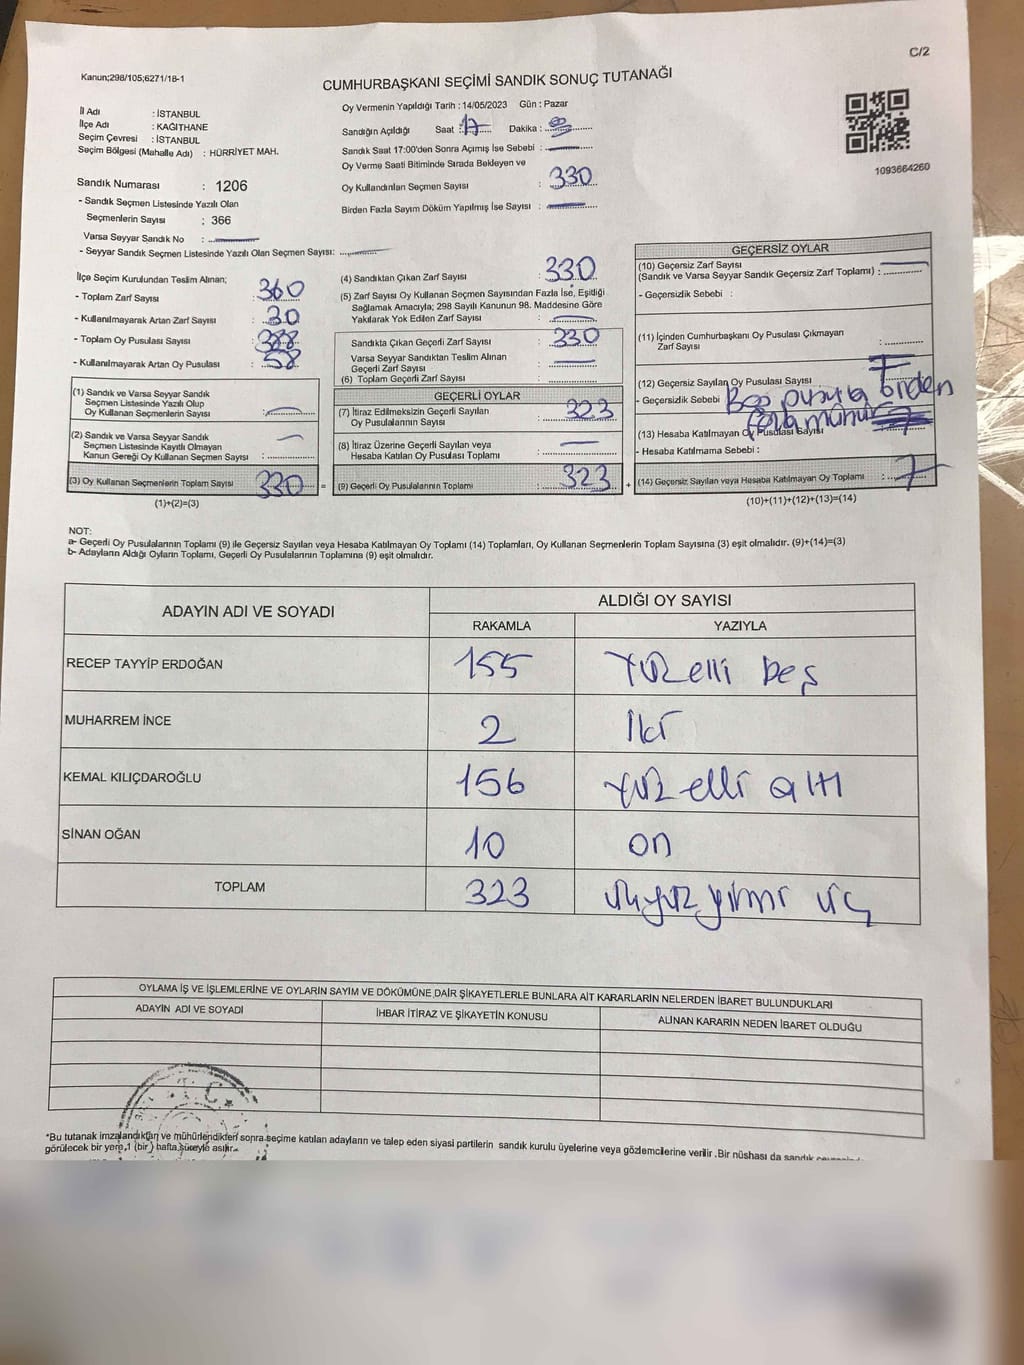 C/2
Kanun;298/105;6271/18-1
CUMHURBAŞKANI SEÇİMİ SANDIK SONUÇ TUTANAĞI
İl Adı : İSTANBUL
İlçe Adı : KAĞITHANE
Seçim Çevresi : İSTANBUL
Seçim Bölgesi (Mahalle Adı) : HÜRRİYET MAH.
Sandık Numarası : 1206
- Sandık Seçmen Listesinde Yazılı Olan
Seçmenlerin Sayısı : 366
Varsa Seyyar Sandık No :
- Seyyar Sandık Seçmen Listesinde Yazılı Olan Seçmen Sayısı:
Oy Vermenin Yapıldığı Tarih : 14/05/2023 Gün : Pazar
Sandığın Açıldığı Saat : 17 Dakika :
Sandık Saat 17:00'den Sonra Açımış İse Sebebi :
Oy Verme Saati Bitiminde Sırada Bekleyen ve
Oy Kullandırılan Seçmen Sayısı : 330
Birden Fazla Sayım Döküm Yapılmış İse Sayısı :
1093664260
İlçe Seçim Kurulundan Teslim Alınan;
- Toplam Zarf Sayısı : 360
- Kullanılmayarak Artan Zarf Sayısı : 30
- Toplam Oy Pusulası Sayısı : 388
- Kullanılmayarak Artan Oy Pusulası : 58
(1) Sandık ve Varsa Seyyar Sandık
Seçmen Listesinde Yazılı Olup
Oy Kullanan Seçmenlerin Sayısı :
(2) Sandık ve Varsa Seyyar Sandık
Seçmen Listesinde Kayıtlı Olmayan
Kanun Gereği Oy Kullanan Seçmen Sayısı :
(3) Oy Kullanan Seçmenlerin Toplam Sayısı 330 =
(1)+(2)=(3)
(4) Sandıktan Çıkan Zarf Sayısı : 330
(5) Zarf Sayısı Oy Kullanan Seçmen Sayısından Fazla İse, Eşitliği
Sağlamak Amacıyla; 298 Sayılı Kanunun 98. Maddesine Göre
Yakılarak Yok Edilen Zarf Sayısı :
Sandıkta Çıkan Geçerli Zarf Sayısı : 330
Varsa Seyyar Sandıktan Teslim Alınan
Geçerli Zarf Sayısı :
(6) Toplam Geçerli Zarf Sayısı :
GEÇERLİ OYLAR
(7) İtiraz Edilmeksizin Geçerli Sayılan
Oy Pusulalarının Sayısı : 323
(8) İtiraz Üzerine Geçerli Sayılan veya
Hesaba Katılan Oy Pusulası Toplamı :
(9) Geçerli Oy Pusulalarının Toplamı : 323 +
GEÇERSİZ OYLAR
(10) Geçersiz Zarf Sayısı
(Sandık ve Varsa Seyyar Sandık Geçersiz Zarf Toplamı) :
- Geçersizlik Sebebi :
(11) İçinden Cumhurbaşkanı Oy Pusulası Çıkmayan
Zarf Sayısı :
(12) Geçersiz Sayılan Oy Pusulası Sayısı 7
- Geçersizlik Sebebi birden
(13) Hesaba Katılmayan Oy Pusulası Sayısı
- Hesaba Katılmama Sebebi :
(14) Geçersiz Sayılan veya Hesaba Katılmayan Oy Toplamı : 7
(10)+(11)+(12)+(13)=(14)
NOT:
a- Geçerli Oy Pusulalarının Toplamı (9) ile Geçersiz Sayılan veya Hesaba Katılmayan Oy Toplamı (14) Toplamları, Oy Kullanan Seçmenlerin Toplam Sayısına (3) eşit olmalıdır. (9)+(14)=(3)
b- Adayların Aldığı Oyların Toplamı, Geçerli Oy Pusulalarının Toplamına (9) eşit olmalıdır.
ADAYIN ADI VE SOYADI ALDIĞI OY SAYISI
RAKAMLA YAZIYLA
RECEP TAYYİP ERDOĞAN 155 Yüz elli beş
MUHARREM İNCE 2 İki
KEMAL KILIÇDAROĞLU 156 Yüz elli altı
SİNAN OĞAN 10 on
TOPLAM 323 üçyüz yirmi üç
OYLAMA İŞ VE İŞLEMLERİNE VE OYLARIN SAYIM VE DÖKÜMÜNE DAİR ŞİKAYETLERLE BUNLARA AİT KARARLARIN NELERDEN İBARET BULUNDUKLARI
ADAYIN ADI VE SOYADI İHBAR İTİRAZ VE ŞİKAYETİN KONUSU ALINAN KARARIN NEDEN İBARET OLDUĞU
*Bu tutanak imzalandıktan ve mühürlendikten sonra seçime katılan adayların ve talep eden siyasi partilerin sandık kurulu üyelerine veya gözlemcilerine verilir .Bir nüshası da sandık
görülecek bir yere,1 (bir ) hafta süreyle asılır.